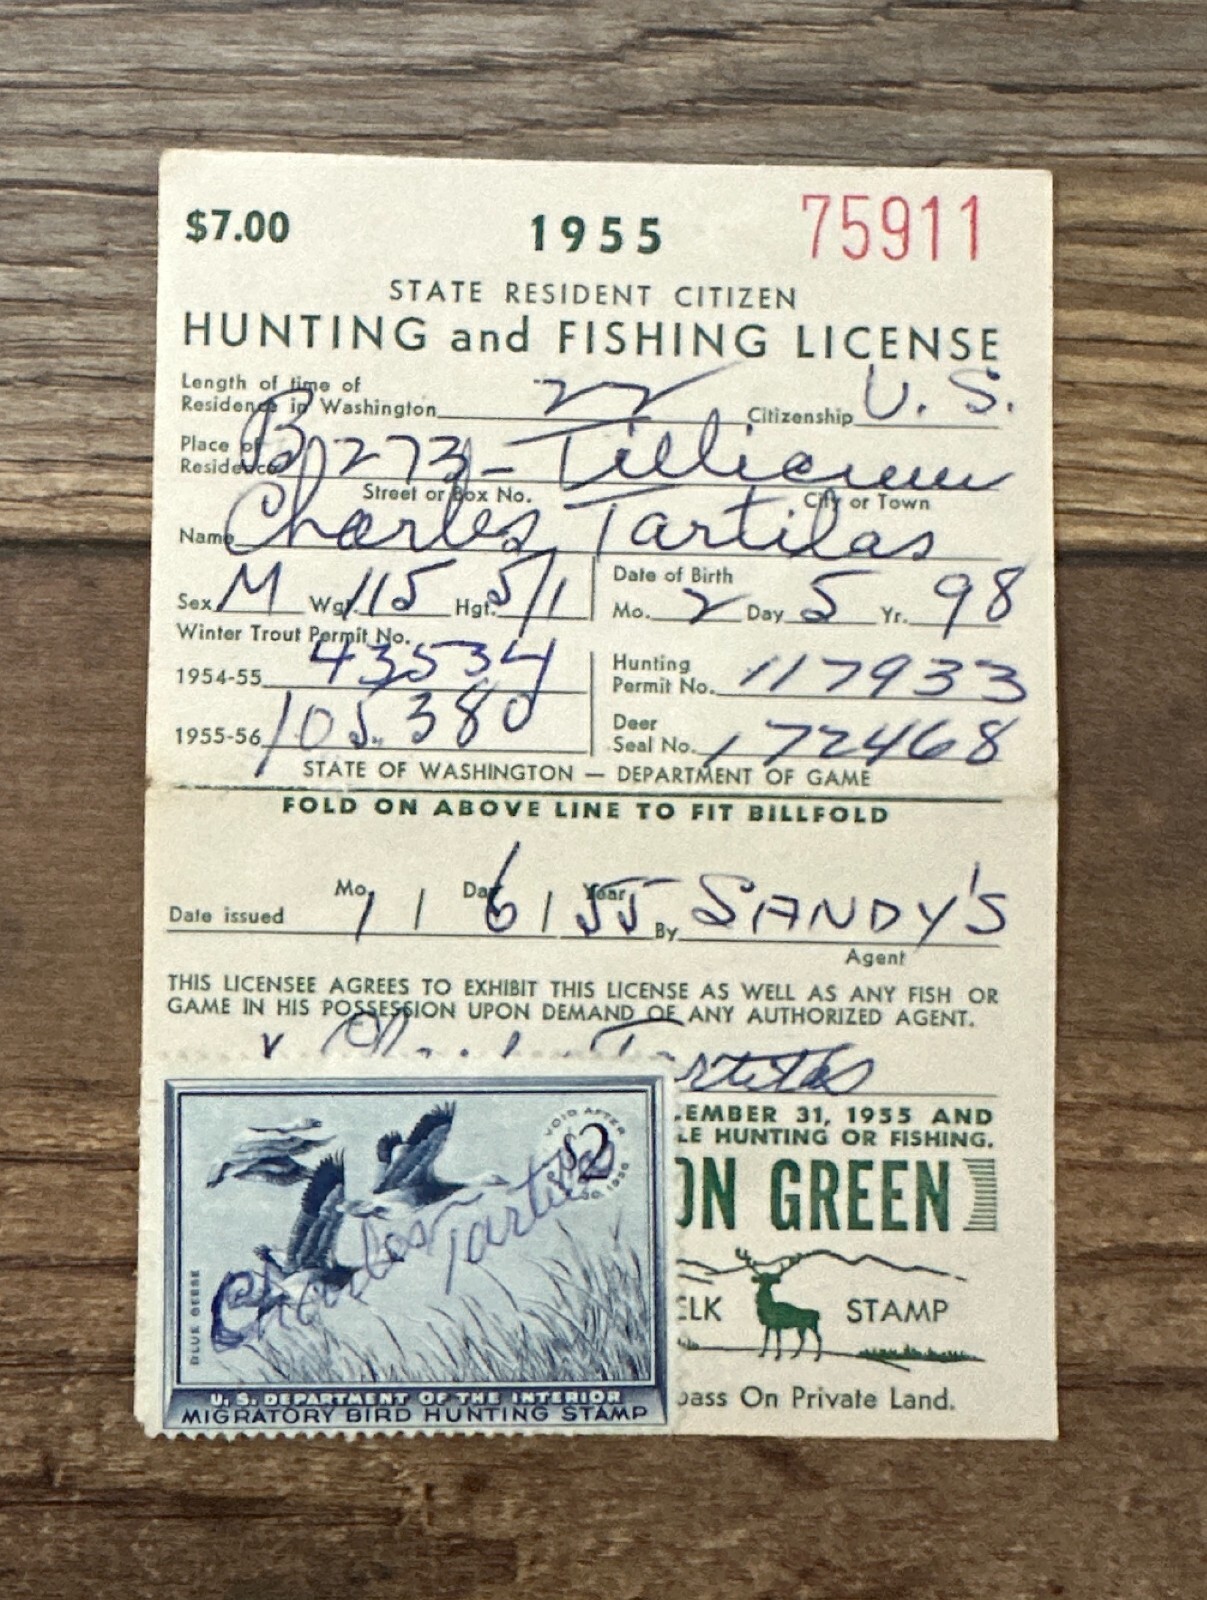 $7.00 1955 75911
STATE RESIDENT CITIZEN
HUNTING and FISHING LICENSE
Length of time of
Residence in Washington 22 Citizenship U.S.
Place of
Residence B 273 - Tillicum
Street or Box No. City or Town
Name Charles Tartilas
Sex M Wgt. 115 Hgt. 5/1
Date of Birth
Mo. 2 Day 5 Yr. 98
Winter Trout Permit No.
1954-55 43534
Hunting
Permit No. 117933
1955-56 105380
Deer
Seal No. 172468
STATE OF WASHINGTON — DEPARTMENT OF GAME
FOLD ON ABOVE LINE TO FIT BILLFOLD
Mo. Day Year
Date issued 1 | 6 | 55 By SANDY'S
Agent
THIS LICENSEE AGREES TO EXHIBIT THIS LICENSE AS WELL AS ANY FISH OR
GAME IN HIS POSSESSION UPON DEMAND OF ANY AUTHORIZED AGENT.
x Tartilas
EMBER 31, 1955 AND
LE HUNTING OR FISHING.
ON GREEN
ELK STAMP
pass On Private Land.
VOID AFTER
$2
30, 1956
Charles Tartilas
BLUE GEESE
U.S. DEPARTMENT OF THE INTERIOR
MIGRATORY BIRD HUNTING STAMP